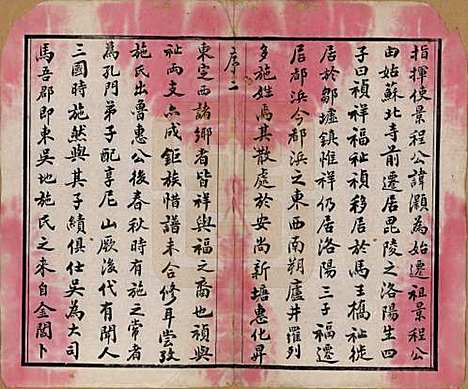 指揮使景程公諱灝為始遷祖景程公
由姑蘇北寺前遷居毘陵之洛陽生四
子曰禎祥福祉禎移居於馬王橋祉徙
居於鄒墟鎮惟祥仍居洛陽三子福遷
居都浜今都浜之東西南朔廬井羅列
多施姓焉其散處於安尚新塘惠化昇
序二
東定西諸鄉者皆祥與福之裔也禎與
祉兩支亦成鉅族惜譜未合修耳嘗攷
施氏出魯惠公後春秋時有施之常者
為孔門弟子配享尼山厥後代有聞人
三國時施然與其子績俱仕吳為大司
馬吾郡即東吳地施氏之來自金閶卜